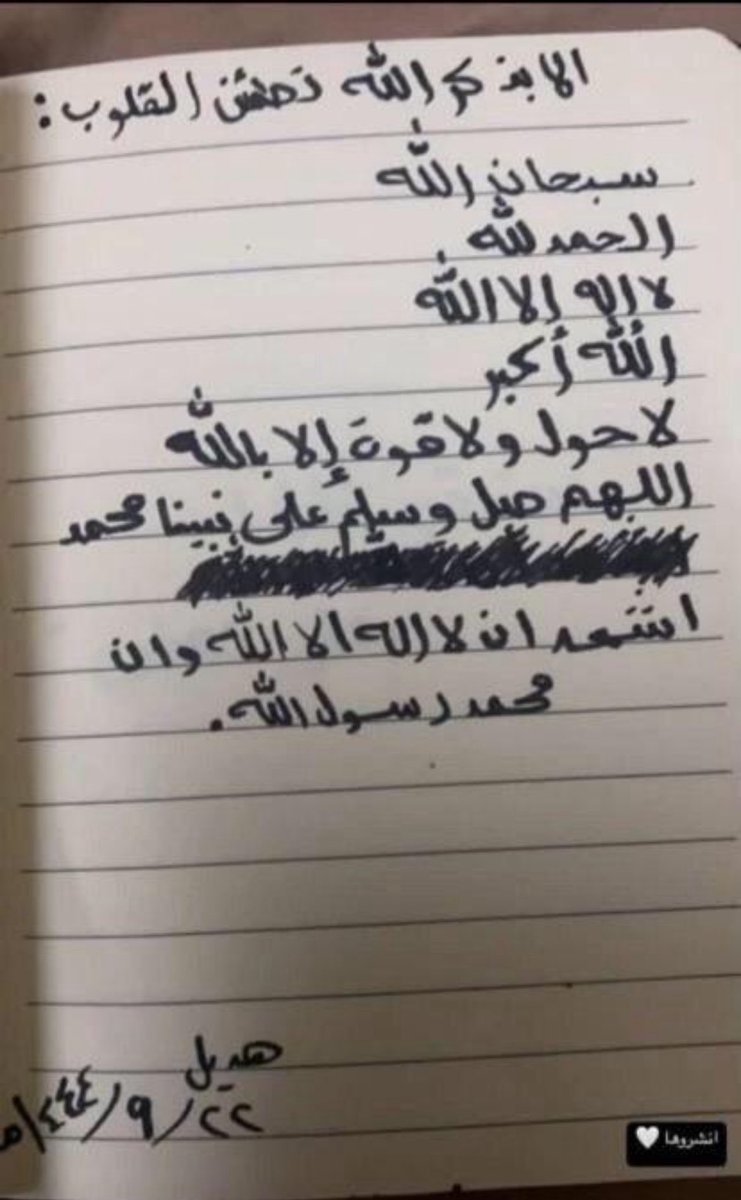 الا بذكر الله تطمئن القلوب :
سبحان الله
الحمدلله
لا إله إلا الله
الله أكبر
لا حول ولا قوة إلا بالله
اللهم صل وسلم على نبينا محمد
اشهد ان لا اله الا الله وان
محمد رسول الله.
هديل
٢٢/٩/١٤٤٤هـ
انشروها 🤍